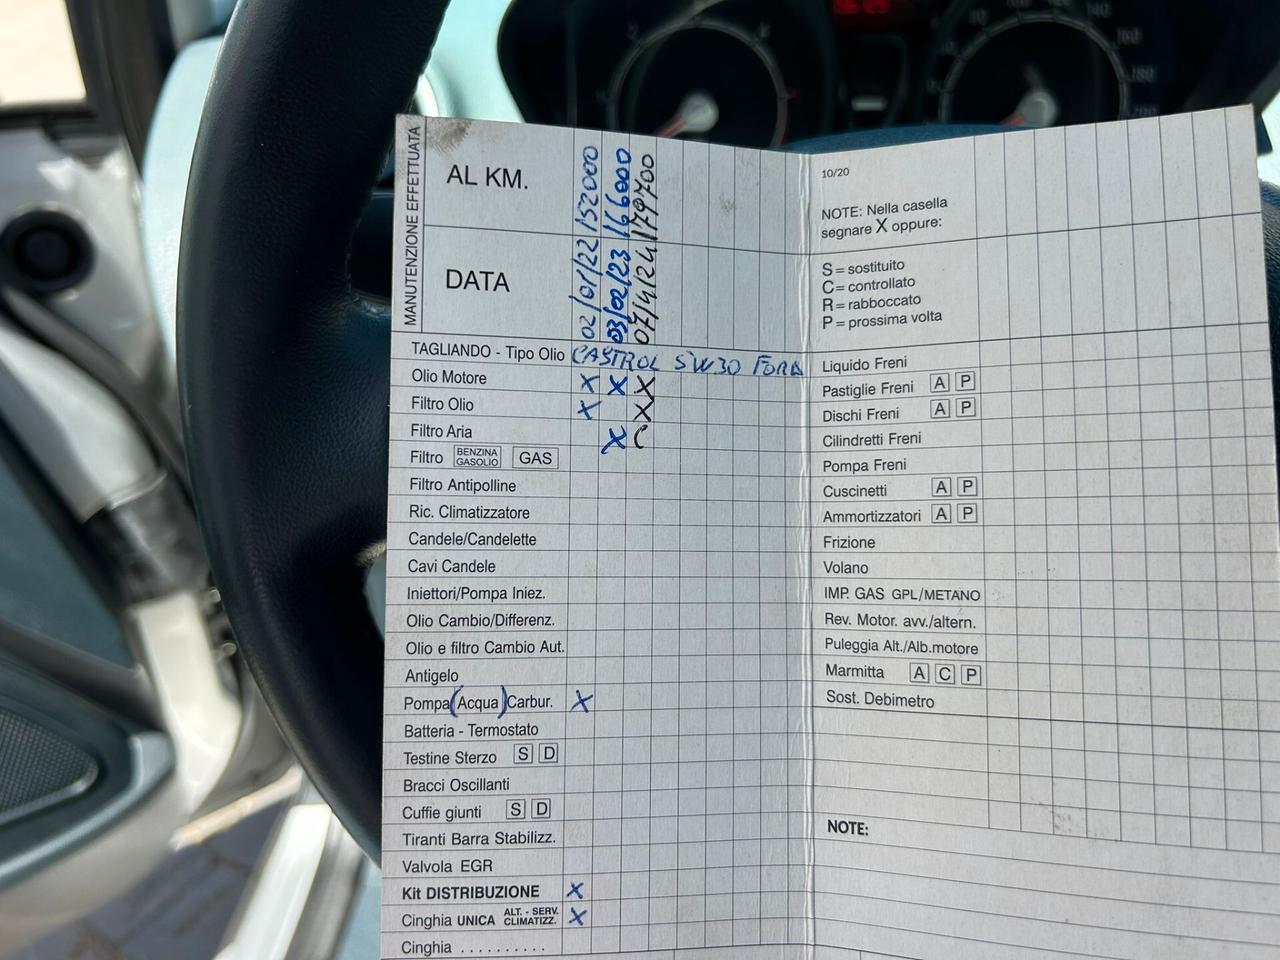 MANUTENZIONE EFFETTUATA
AL KM.
152000
166000
179700
DATA
02/01/22
03/02/23
07/4/24
TAGLIANDO - Tipo Olio CASTROL 5W30 FORD
Olio Motore X X X
Filtro Olio X X
Filtro Aria X C
Filtro BENZINA GASOLIO GAS
Filtro Antipolline
Ric. Climatizzatore
Candele/Candelette
Cavi Candele
Iniettori/Pompa Iniez.
Olio Cambio/Differenz.
Olio e filtro Cambio Aut.
Antigelo
Pompa (Acqua) Carbur. X
Batteria - Termostato
Testine Sterzo S D
Bracci Oscillanti
Cuffie giunti S D
Tiranti Barra Stabilizz.
Valvola EGR
Kit DISTRIBUZIONE X
Cinghia UNICA ALT. - SERV. CLIMATIZZ. X
Cinghia ..........
10/20
NOTE: Nella casella
segnare X oppure:
S = sostituito
C = controllato
R = rabboccato
P = prossima volta
Liquido Freni
Pastiglie Freni A P
Dischi Freni A P
Cilindretti Freni
Pompa Freni
Cuscinetti A P
Ammortizzatori A P
Frizione
Volano
IMP. GAS GPL/METANO
Rev. Motor. avv./altern.
Puleggia Alt./Alb.motore
Marmitta A C P
Sost. Debimetro
NOTE: